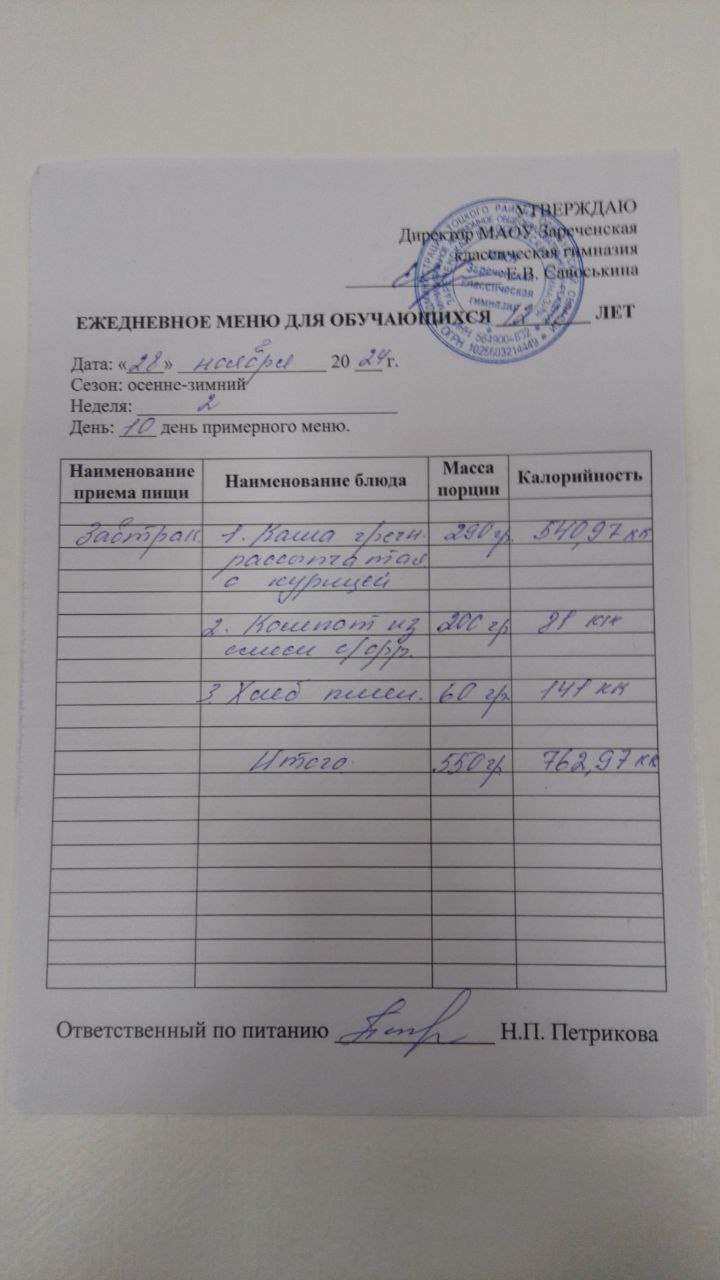 УТВЕРЖДАЮ
Директор МАОУ Зареченская
классическая гимназия
Е.В. Савоськина
Зареченская
классическая
гимназия
ОГРН 1025603214449
ЕЖЕДНЕВНОЕ МЕНЮ ДЛЯ ОБУЧАЮЩИХСЯ 12 ЛЕТ
Дата: «28» ноября 2024 г.
Сезон: осенне-зимний
Неделя: 2
День: 10 день примерного меню.
Наименование приема пищи Наименование блюда Масса порции Калорийность
Завтрак 1. Каша гречн. 290 гр. 540,97 кк
рассыпчатая
с курицей
2. Компот из 200 гр 81 кк
смеси с/фр.
3 Хлеб пшен. 60 гр. 141 кк
Итого. 550 гр 762,97 кк
Ответственный по питанию Н.П. Петрикова